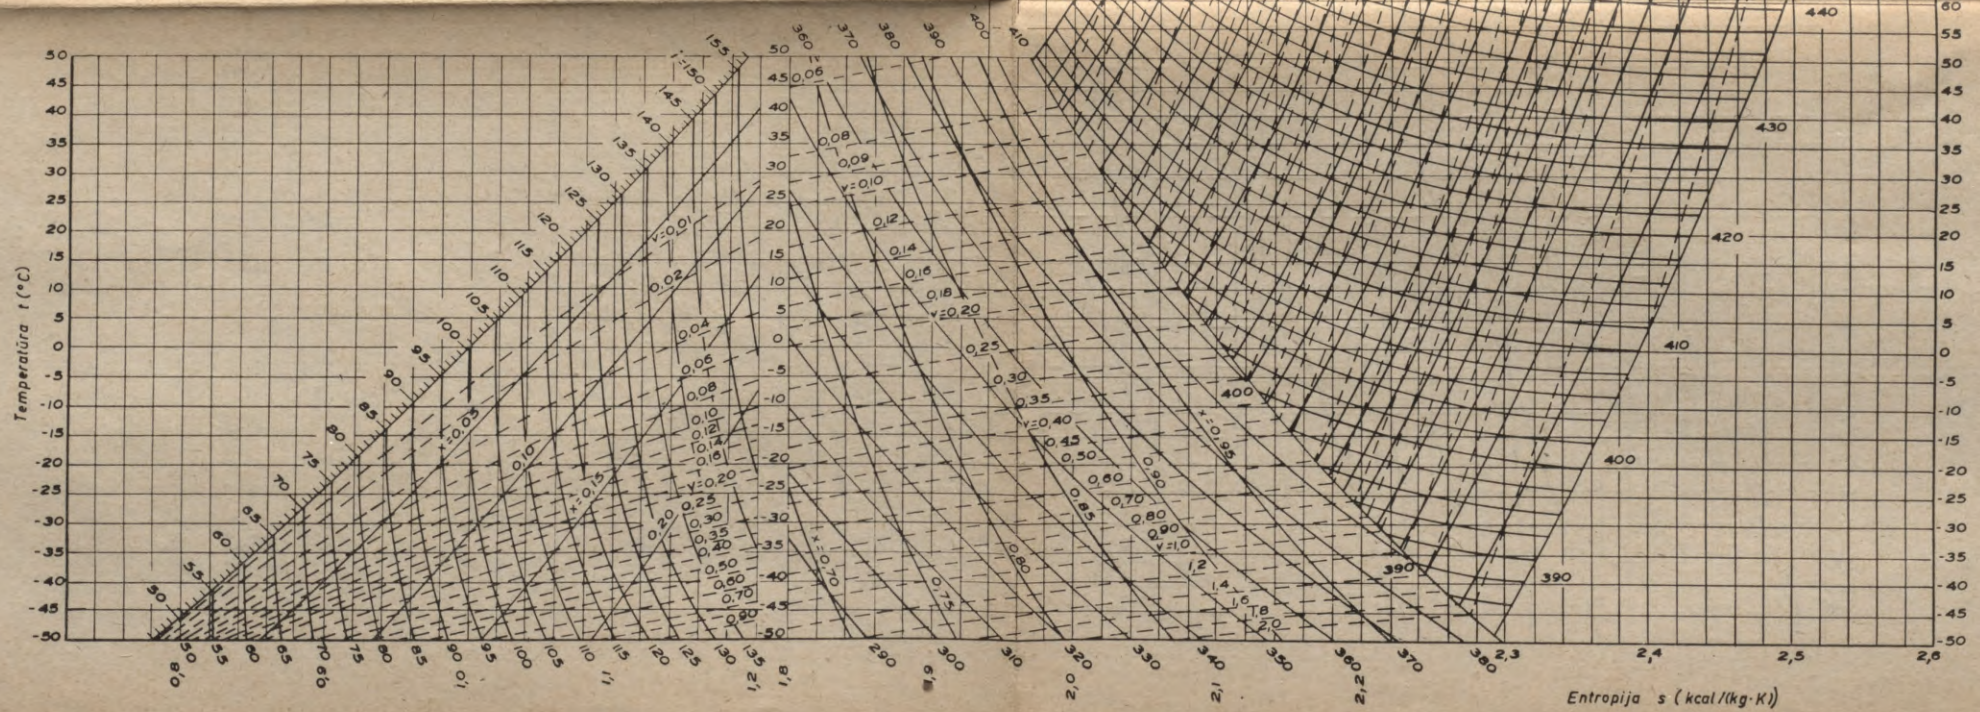 360 370 380 390 400 410 440
50 45 40 35 30 25 20 15 10 5 0 -5 -10 -15 -20 -25 -30 -35 -40 -45 -50
Temperatūra t (°C)
50 55 60 65 70 75 80 85 90 95 100 105 110 115 120 125 130 135 140 145 i=150 155
v=0,01
0,02
0,04
0,06
0,08
0,10
0,12
0,14
0,16
v=0,20
0,25
0,30
0,35
0,50
0,60
0,70
0,90
x=0,05
0,10
x=0,15
0,20
50 45 40 35 30 25 20 15 10 5 0 -5 -10 -15 -20 -25 -30 -35 -40 -45 -50
0,06
0,08
0,09
v=0,10
0,12
0,14
0,16
0,18
v=0,20
0,25
0,30
0,35
v=0,40
0,45
0,50
0,60
0,70
0,80
0,90
v=1,0
1,2
1,4
1,6
1,8
2,0
x=0,70
0,75
0,80
0,85
0,90
x=0,95
400
390
430
420
410
400
390
60 55 50 45 40 35 30 25 20 15 10 5 0 -5 -10 -15 -20 -25 -30 -35 -40 -45 -50
50 55 60 65 70 75 80 85 90 95 100 105 110 115 120 125 130 135
0,8 0,9 1,0 1,1 1,2 1,8
290 300 310 320 330 340 350 360 370 380
1,9 2,0 2,1 2,2 2,3 2,4 2,5 2,6
Entropija s (kcal/(kg·K))